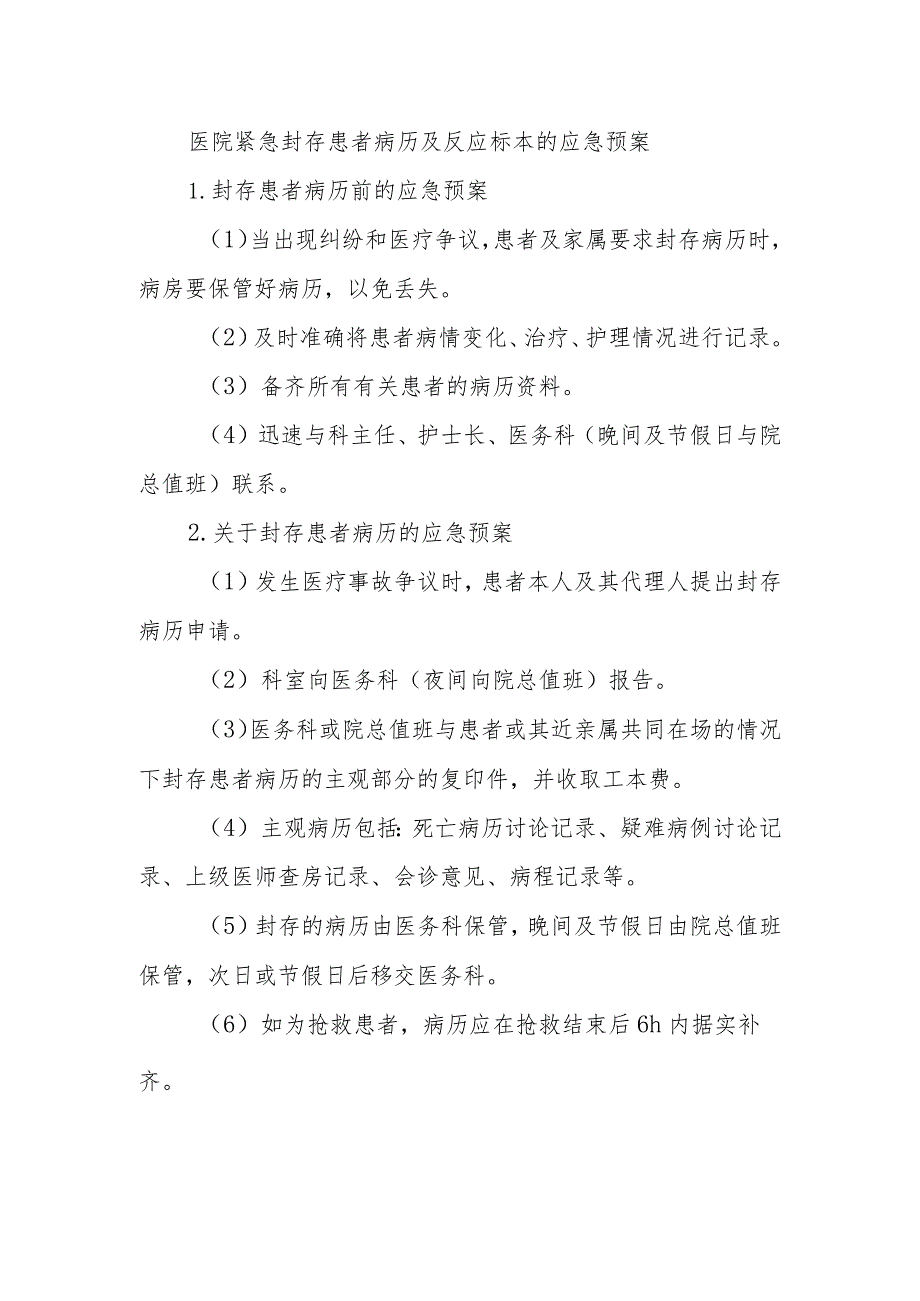 医院紧急封存患者病历及反应标本的应急预案
1.封存患者病历前的应急预案
（1)当出现纠纷和医疗争议,患者及家属要求封存病历时，
病房要保管好病历，以免丢失。
（2)及时准确将患者病情变化、治疗、护理情况进行记录。
（3）备齐所有有关患者的病历资料。
（4）迅速与科主任、护士长、医务科（晚间及节假日与院
总值班）联系。
2.关于封存患者病历的应急预案
（1）发生医疗事故争议时,患者本人及其代理人提出封存
病历申请。
（2）科室向医务科（夜间向院总值班）报告。
（3)医务科或院总值班与患者或其近亲属共同在场的情况
下封存患者病历的主观部分的复印件，并收取工本费。
（4）主观病历包括:死亡病历讨论记录、疑难病例讨论记
录、上级医师查房记录、会诊意见、病程记录等。
（5）封存的病历由医务科保管,晚间及节假日由院总值班
保管，次日或节假日后移交医务科。
（6）如为抢救患者，病历应在抢救结束后6h内据实补
齐。